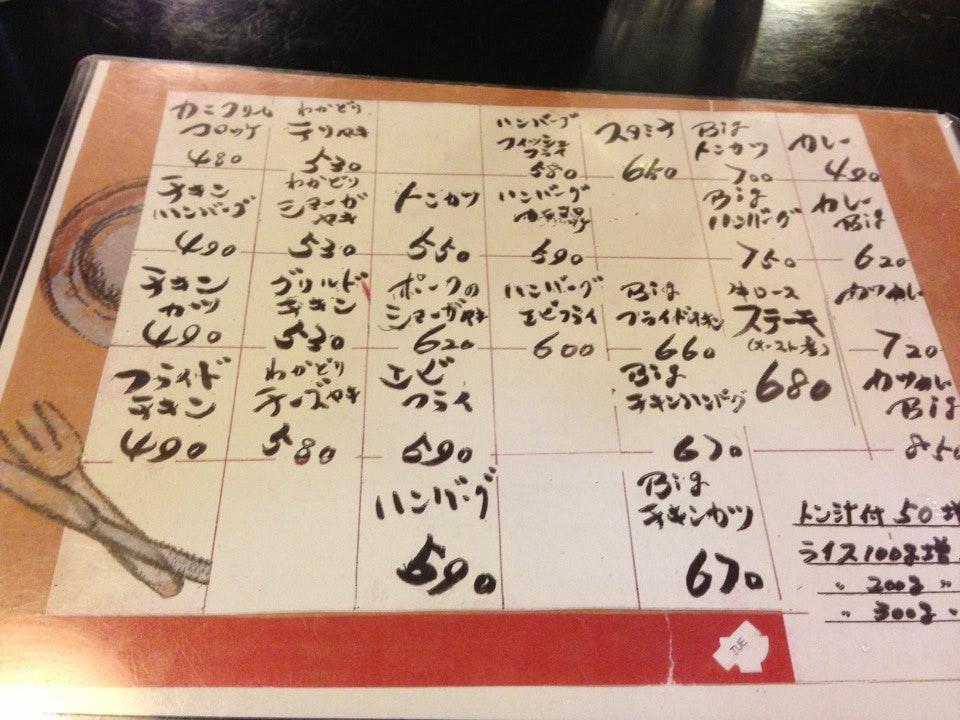 カニクリーム
コロッケ
480
チキン
ハンバーグ
490
チキン
カツ
490
フライド
チキン
490
わかどり
テリヤキ
530
わかどり
ショーガ
ヤキ
530
グリルド
チキン
530
わかどり
チーズヤキ
580
トンカツ
550
ポークの
ショーガヤキ
620
エビ
フライ
590
ハンバーグ
590
ハンバーグ
フィッシュ
フライ
580
ハンバーグ
590
ハンバーグ
エビフライ
600
スタミナ
650
Big
フライドチキン
660
Big
チキンハンバーグ
670
Big
チキンカツ
670
Big
トンカツ
700
Big
ハンバーグ
750
牛ロース
ステーキ
680
カレー
490
カレー
Big
620
カツカレー
720
カツカレー
Big
850
トン汁付 50増
ライス100g増
〃 200g 〃
〃 300g 〃
TUE